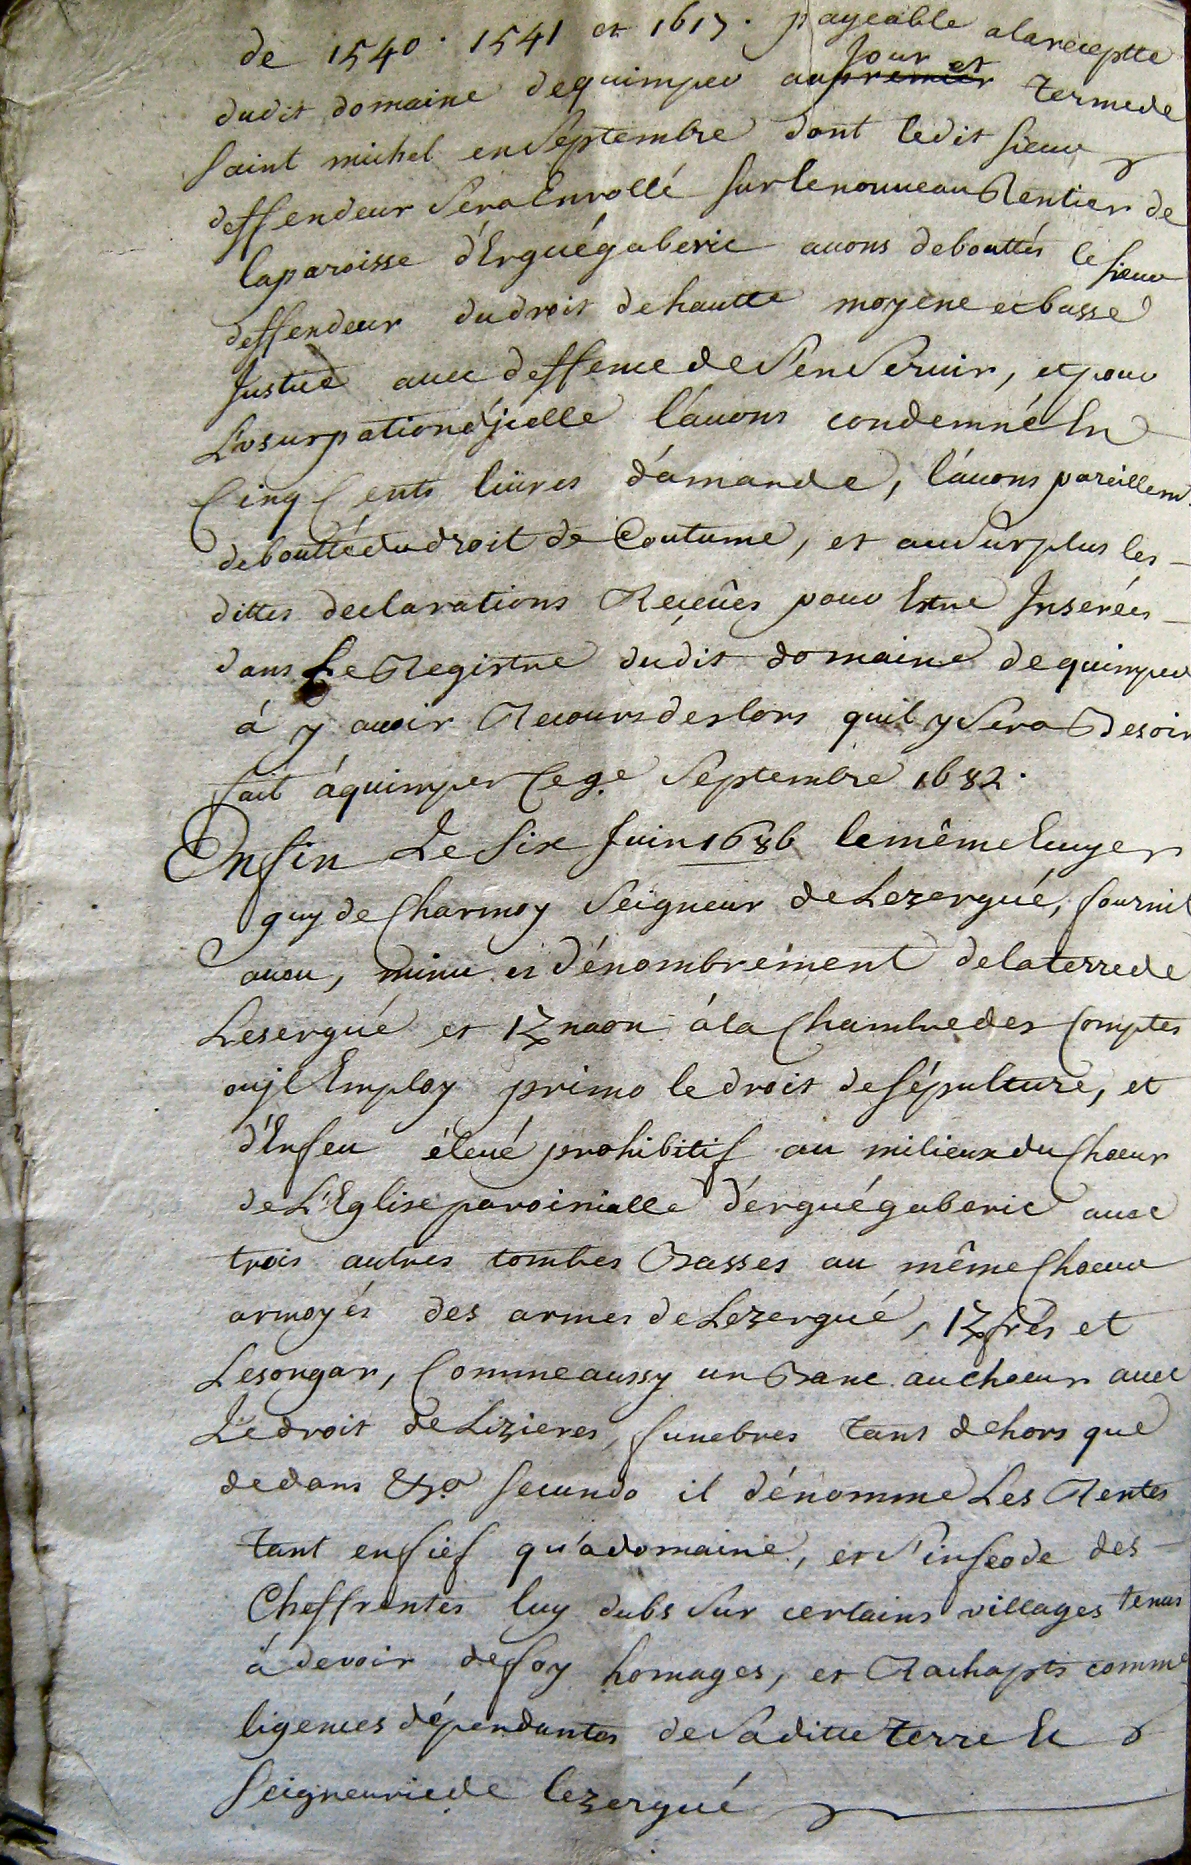 de 1540. 1541 et 1617. payeable alareceptte
dudit domaine dequimper au premier jour et termede
saint michel enseptembre dont ledit sieur
deffendeur sera Enrollé surlenouveau Rentier de
laparoisse d'Erguégaberic avons debouttés le sieur
deffendeur dudroit dehautte moyene etbasse
Justice avec deffence de s'en servir, et pour
L'vsurpation d'jcelle l'avons condemné En
Cinq Cents livres d'amande, l'avons pareillemt.
deboutté du droit de Coutume, et au surplus les
dittes declarations Reçeües pour Estre Inserées
dans Le Registre dudit domaine de quimper
á y avoir Recours deslors quil y sera Besoin
fait áquimper Ce 9.e Septembre 1682.
Enfin Le Six Juin 1686 lemême Ecuyer
guy de Charmoy Seigneur de Lezergué, fournit
aveu, minu et dénombrément delaterrede
Lesergué et Kznaou álaChambredes Comptes
oujl Employ primo ledroit desépulture, et
d'Enfeu élevé prohibitif au milieux du Choeur
de L'Eglise paroissialle d'érguégaberic avec
trois autres tombes Basses au même Choeur
armoyés des armes de Lezergué, Kfrés et
Lesongar, Comme aussy un Banc auchoeur avec
Le droit de Lizieres, funebres tant dehors que
dedans &ra secundo il dénomme Les Rentes
tant enfief qu'adomaine, et s'infeode des
Cheffrentes luy dubs sur certains villages tenus
á devoir defoy homages, et Rachapts comme
ligences dépendantes desaditte terre Et
Seigneuriede lezergué